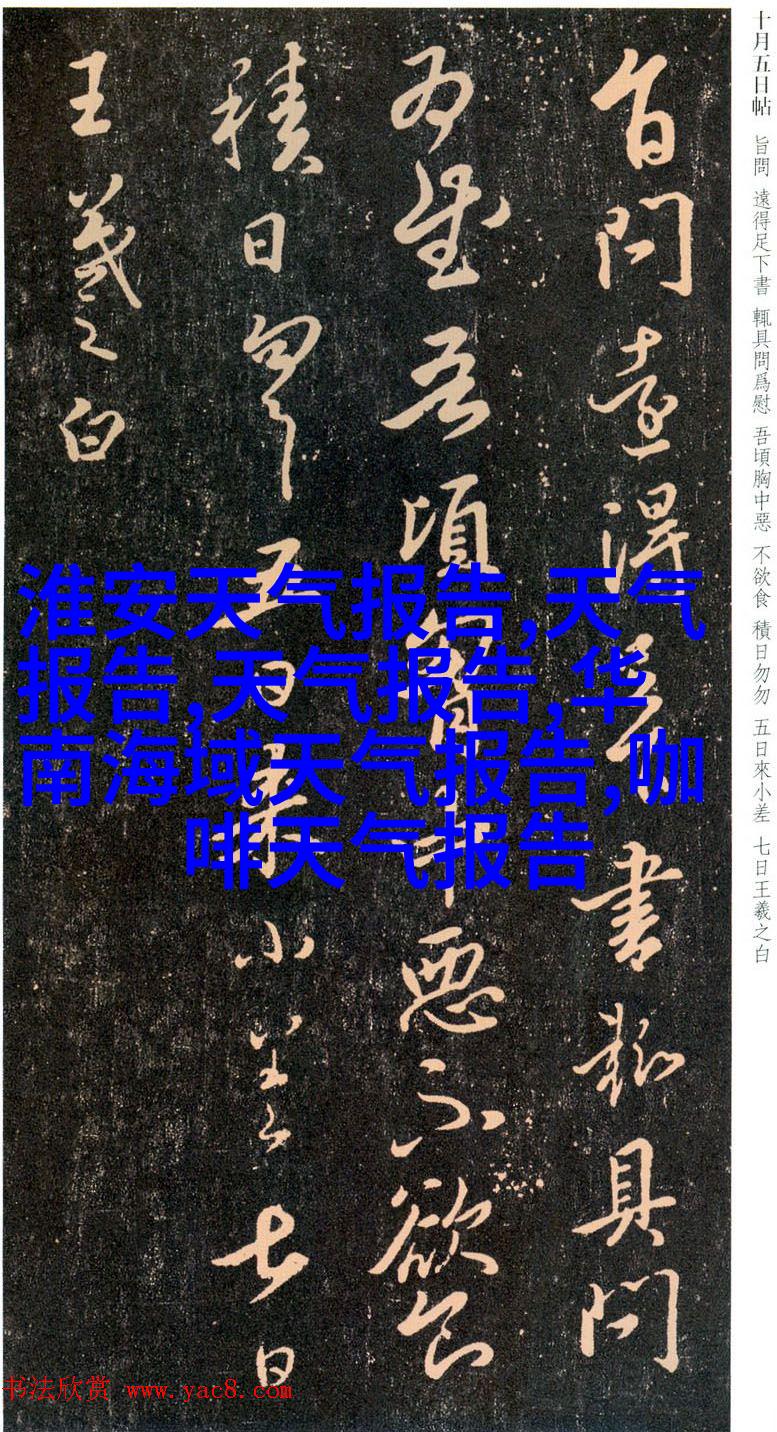 十月五日帖 旨問 遠得足下書 輒具問爲慰 吾頃胸中惡 不欲食 積日勿勿 五日來小差 七日王羲之白
旨問遠得足下書輒具問
爲慰吾頃胸中惡不欲食
積日勿勿五日來小差七日
王羲之白
淮安天气报告,天气
报告,天气报告,华
南海域天气报告,咖
啡天气报告
书法欣赏 www.yac8.com